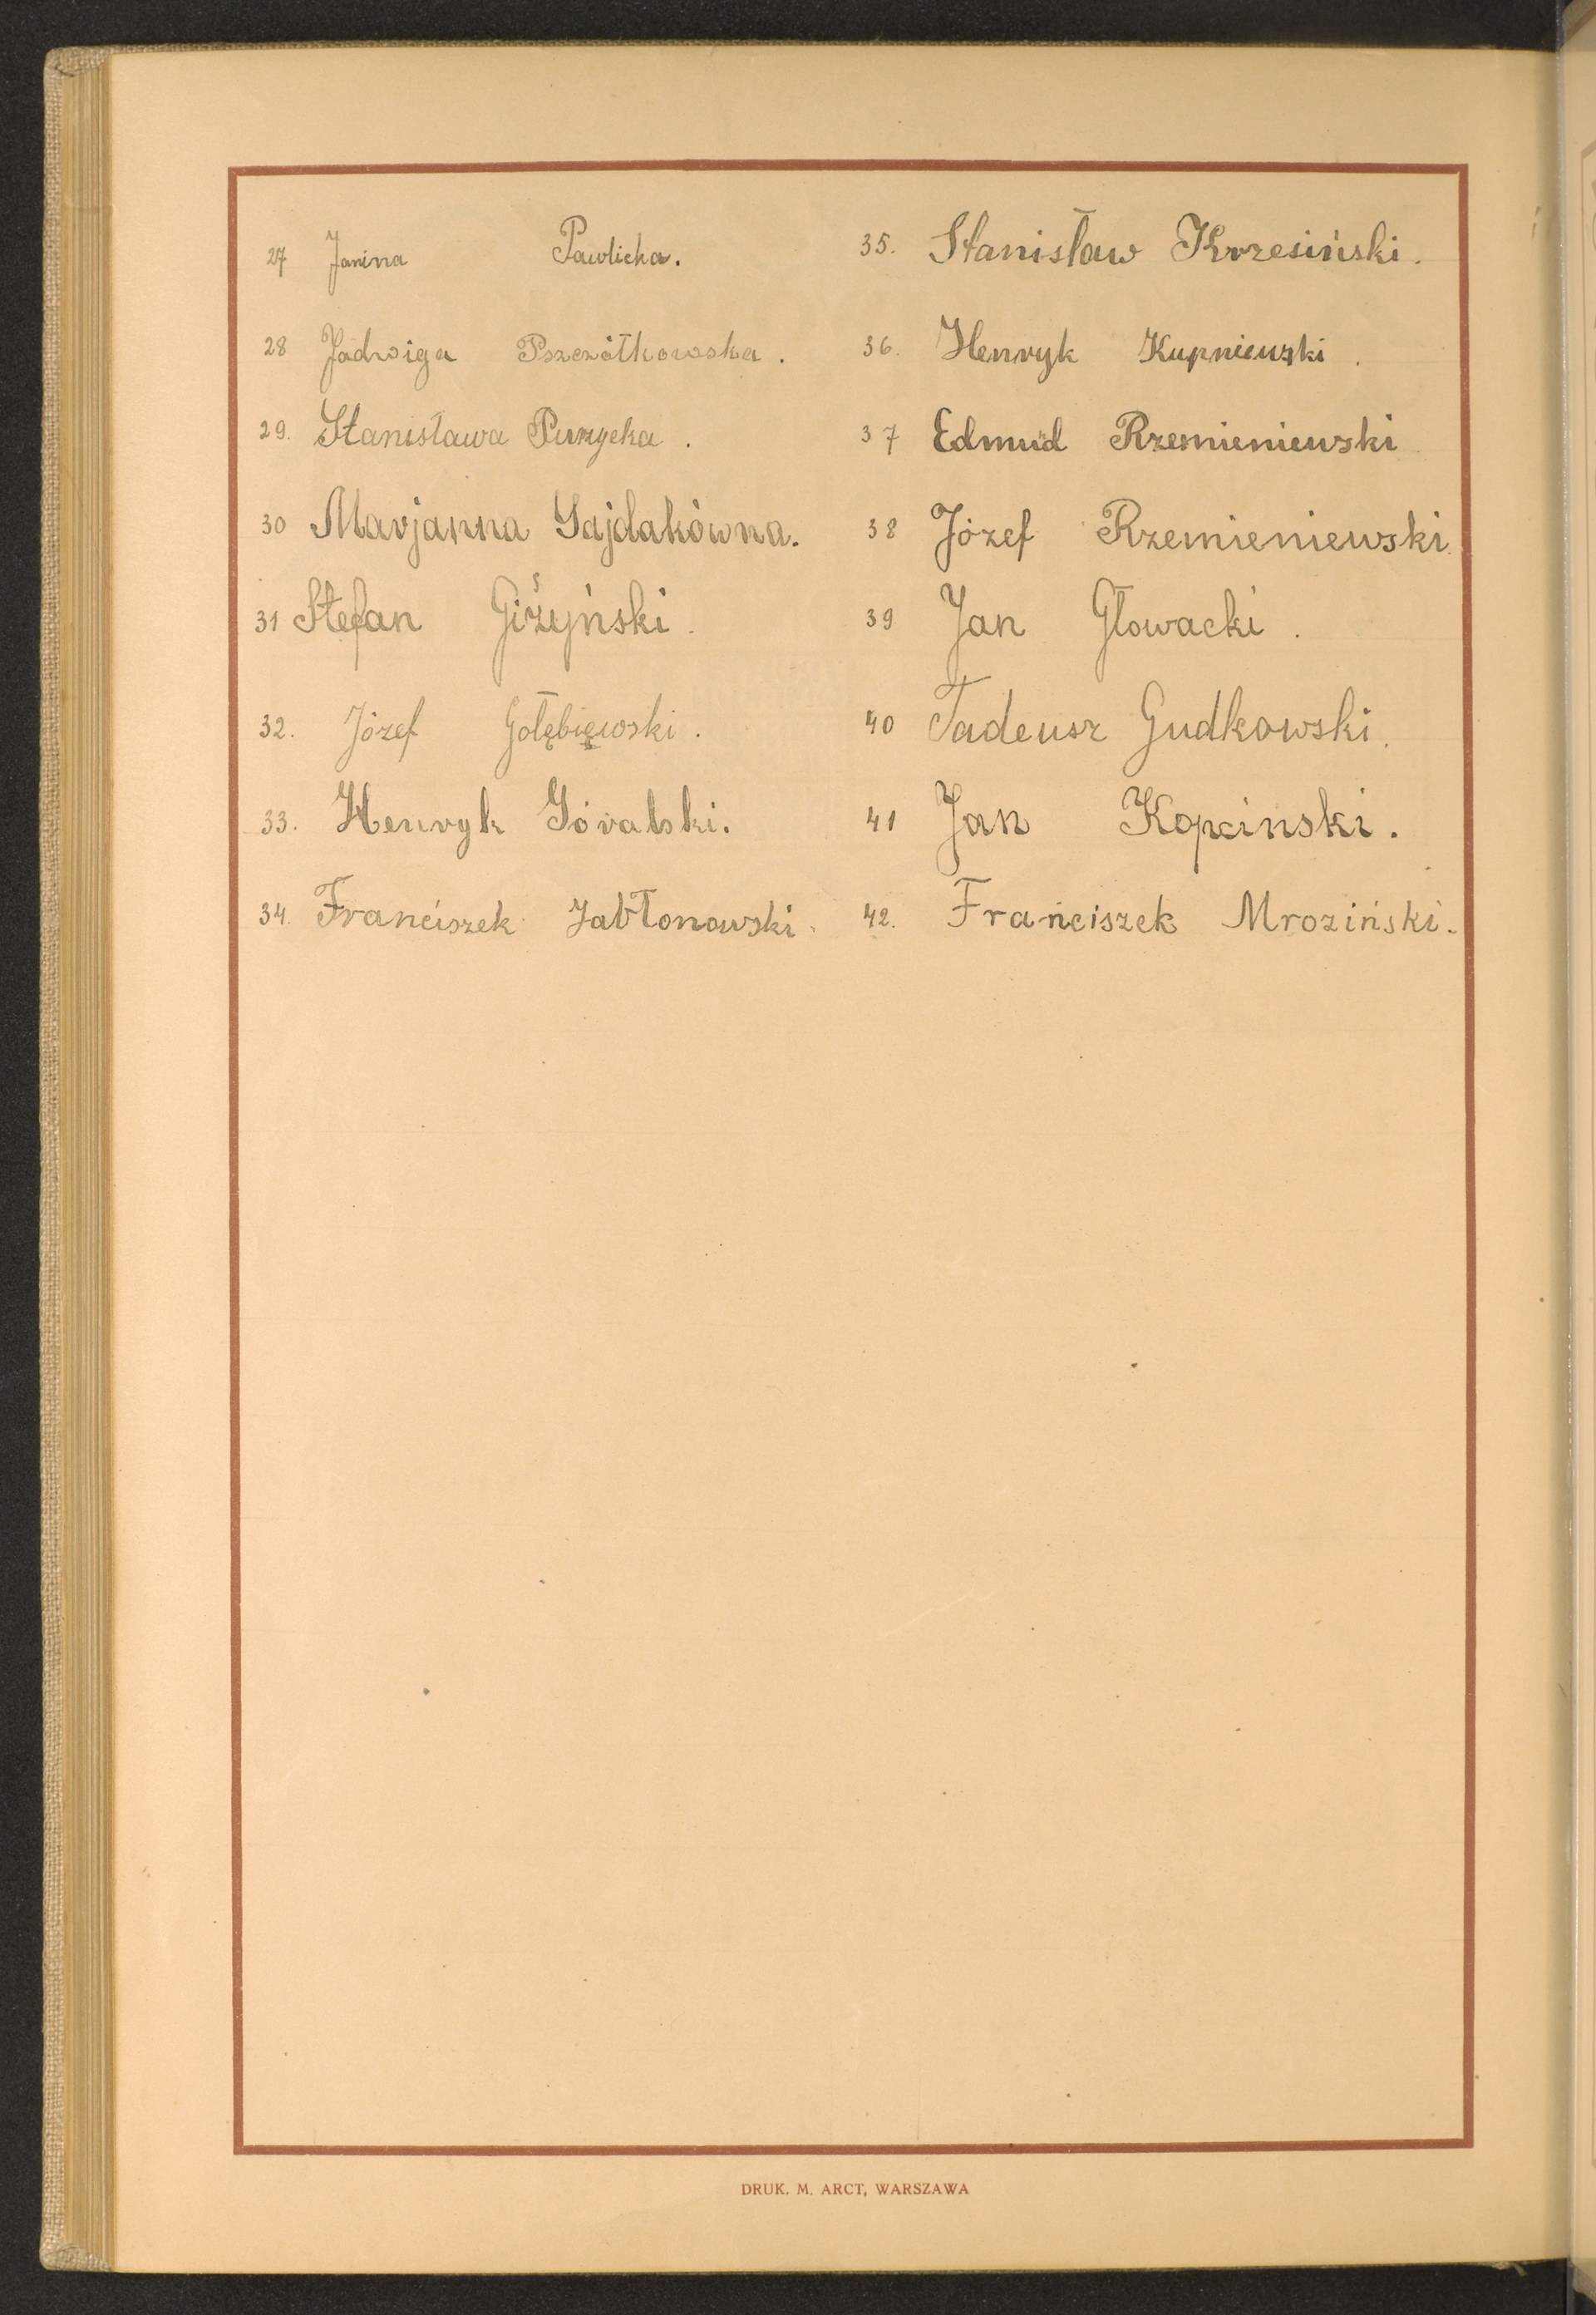 27 Janina Pawlicka.
28 Jadwiga Pszczółkowska.
29. Stanisława Purzycka.
30 Marjanna Gajdakówna.
31 Stefan Giżyński.
32. Józef Gołębięwski.
33. Henryk Góralski.
34. Franciszek Jabłonowski.
35. Stanisław Krzesiński.
36. Henryk Kupniewski.
37 Edmud Rzemieniewski
38 Józef Rzemieniewski.
39 Jan Głowacki.
40 Tadeusz Gudkowski.
41 Jan Kopcinski.
42. Franciszek Mroziński.
DRUK. M. ARCT, WARSZAWA